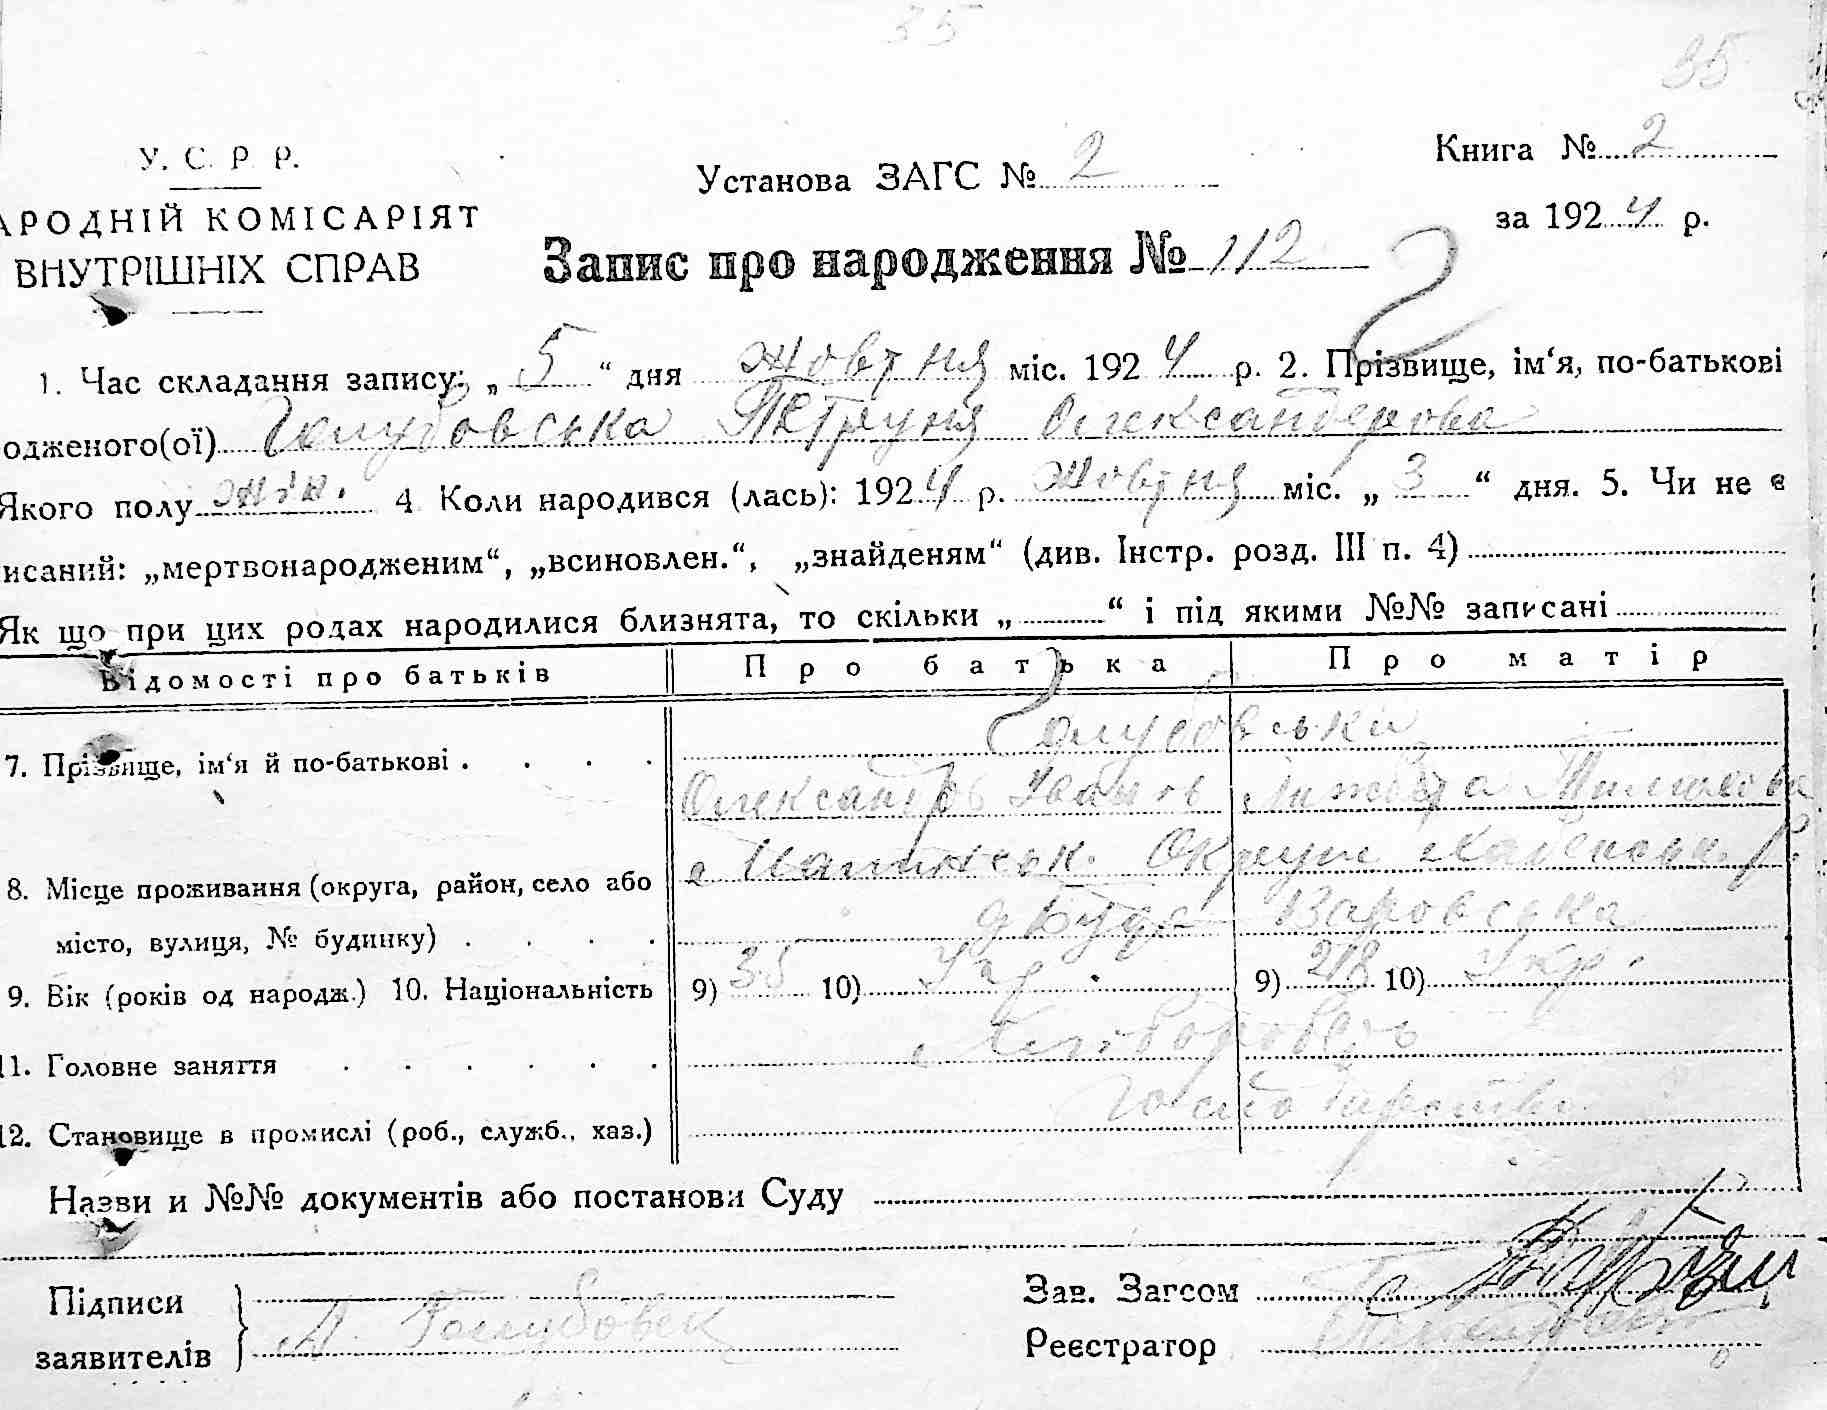 35
35
У. С. Р. Р.
АРОДНІЙ КОМІСАРІЯТ
ВНУТРІШНІХ СПРАВ
Установа ЗАГС № 2
Книга № 2
за 1924 р.
Запис про народження № 112
1. Час складання запису: „5“ дня Жовтня міс. 1924 р. 2. Прізвище, ім‘я, по-батькові
одженого(ої) Голубовська Петруня Олександрова
Якого полу жін. 4 Коли народився (лась): 1924 р. Жовтня міс. „3“ дня. 5. Чи не є
исаний: „мертвонародженим“, „всиновлен.“, „знайденям“ (див. Інстр. розд. III п. 4)
Як що при цих родах народилися близнята, то скільки „ “ і під якими №№ записані
Відомості про батьків Про батька Про матір
Голубовськи
7. Прізвище, ім‘я й по-батькові
Олександр Іванов
8. Місце проживання (округа, район, село або
Округи
місто, вулиця, № будинку)
Буда Варовська
9. Вік (років од народж.) 10. Національність 9) 35 10) Укр. 9) 28 10) Укр.
11. Головне заняття Хлібороб
12. Становище в промислі (роб., служб., хаз.)
Назви и №№ документів або постанови Суду
Підписи
заявителів
А. Голубовск
Зав. Загсом
Реєстратор